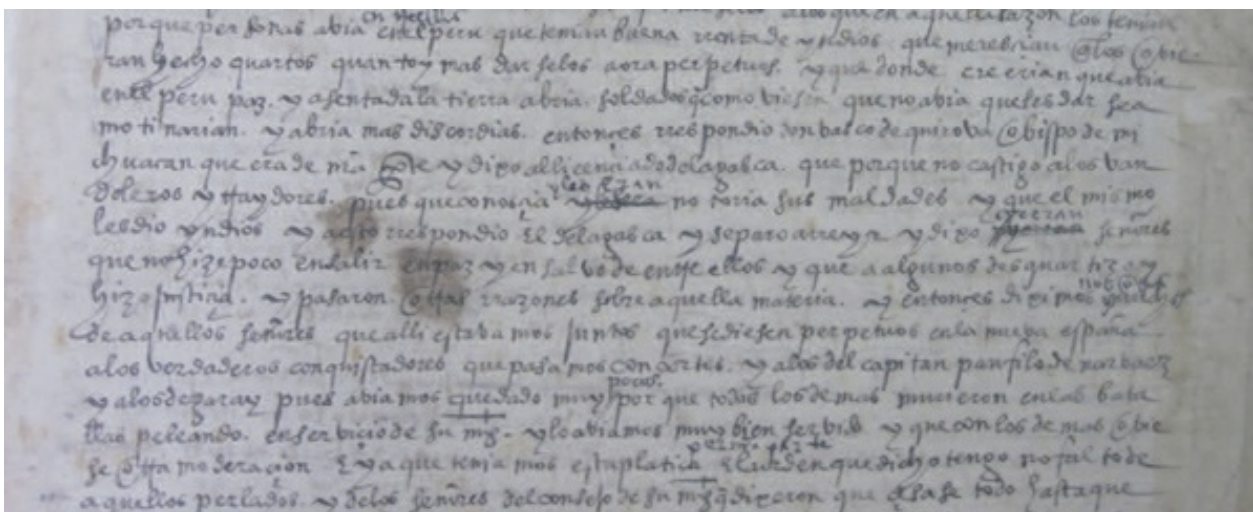 alos que en aquella sazon los tenian
porque personas abia en el peru que tenian buena rrenta de yndios que merescian q̃ los obie
ran hecho quartos quanto y mas dar selos aora perpetuos. y que donde creerian que abia
en el peru paz. y asentada la tierra abria. soldados q̃ como viesen que no abia que les dar se a
motinarian. y abria mas discordias. entonces rrespondio don basco de quiroga obispo de mi
chuacan que era de nr̃a pte y dixo al licenciado de la gasca. que porque no castigo a los van
doleros y traydores. pues que conosçia y les eran notoria sus maldades y que el mismo
les dio yndios y a esto rrespondio el de la gasca y se paro a rreyr y dixo señores
que no hize poco en salir en paz y en salvo de entre ellos y que a algunos desquartize y
hize justiçia. y pasaron otras rrazones sobre aquella materia. y entonces diximos
de aquellos señores que alli estavamos juntos que se diesen perpetuos en la nueva españa
a los verdaderos conquistadores que pasamos con cortes. y a los del capitan panfilo de narbaez
y a los de garay pues abiamos quedado muy pocos. por que todos los demas murieron en las bata
llas peleando. en serviçio de su mg̃. y lo abiamos muy bien servido y que con los demas obie
se otra moderaçion E ya que teniamos esta platica El orden que dicho tengo no falto de
aquellos perlados. y de los señores del consejo de su mg̃ q̃ dixeron que çesase todo hasta que